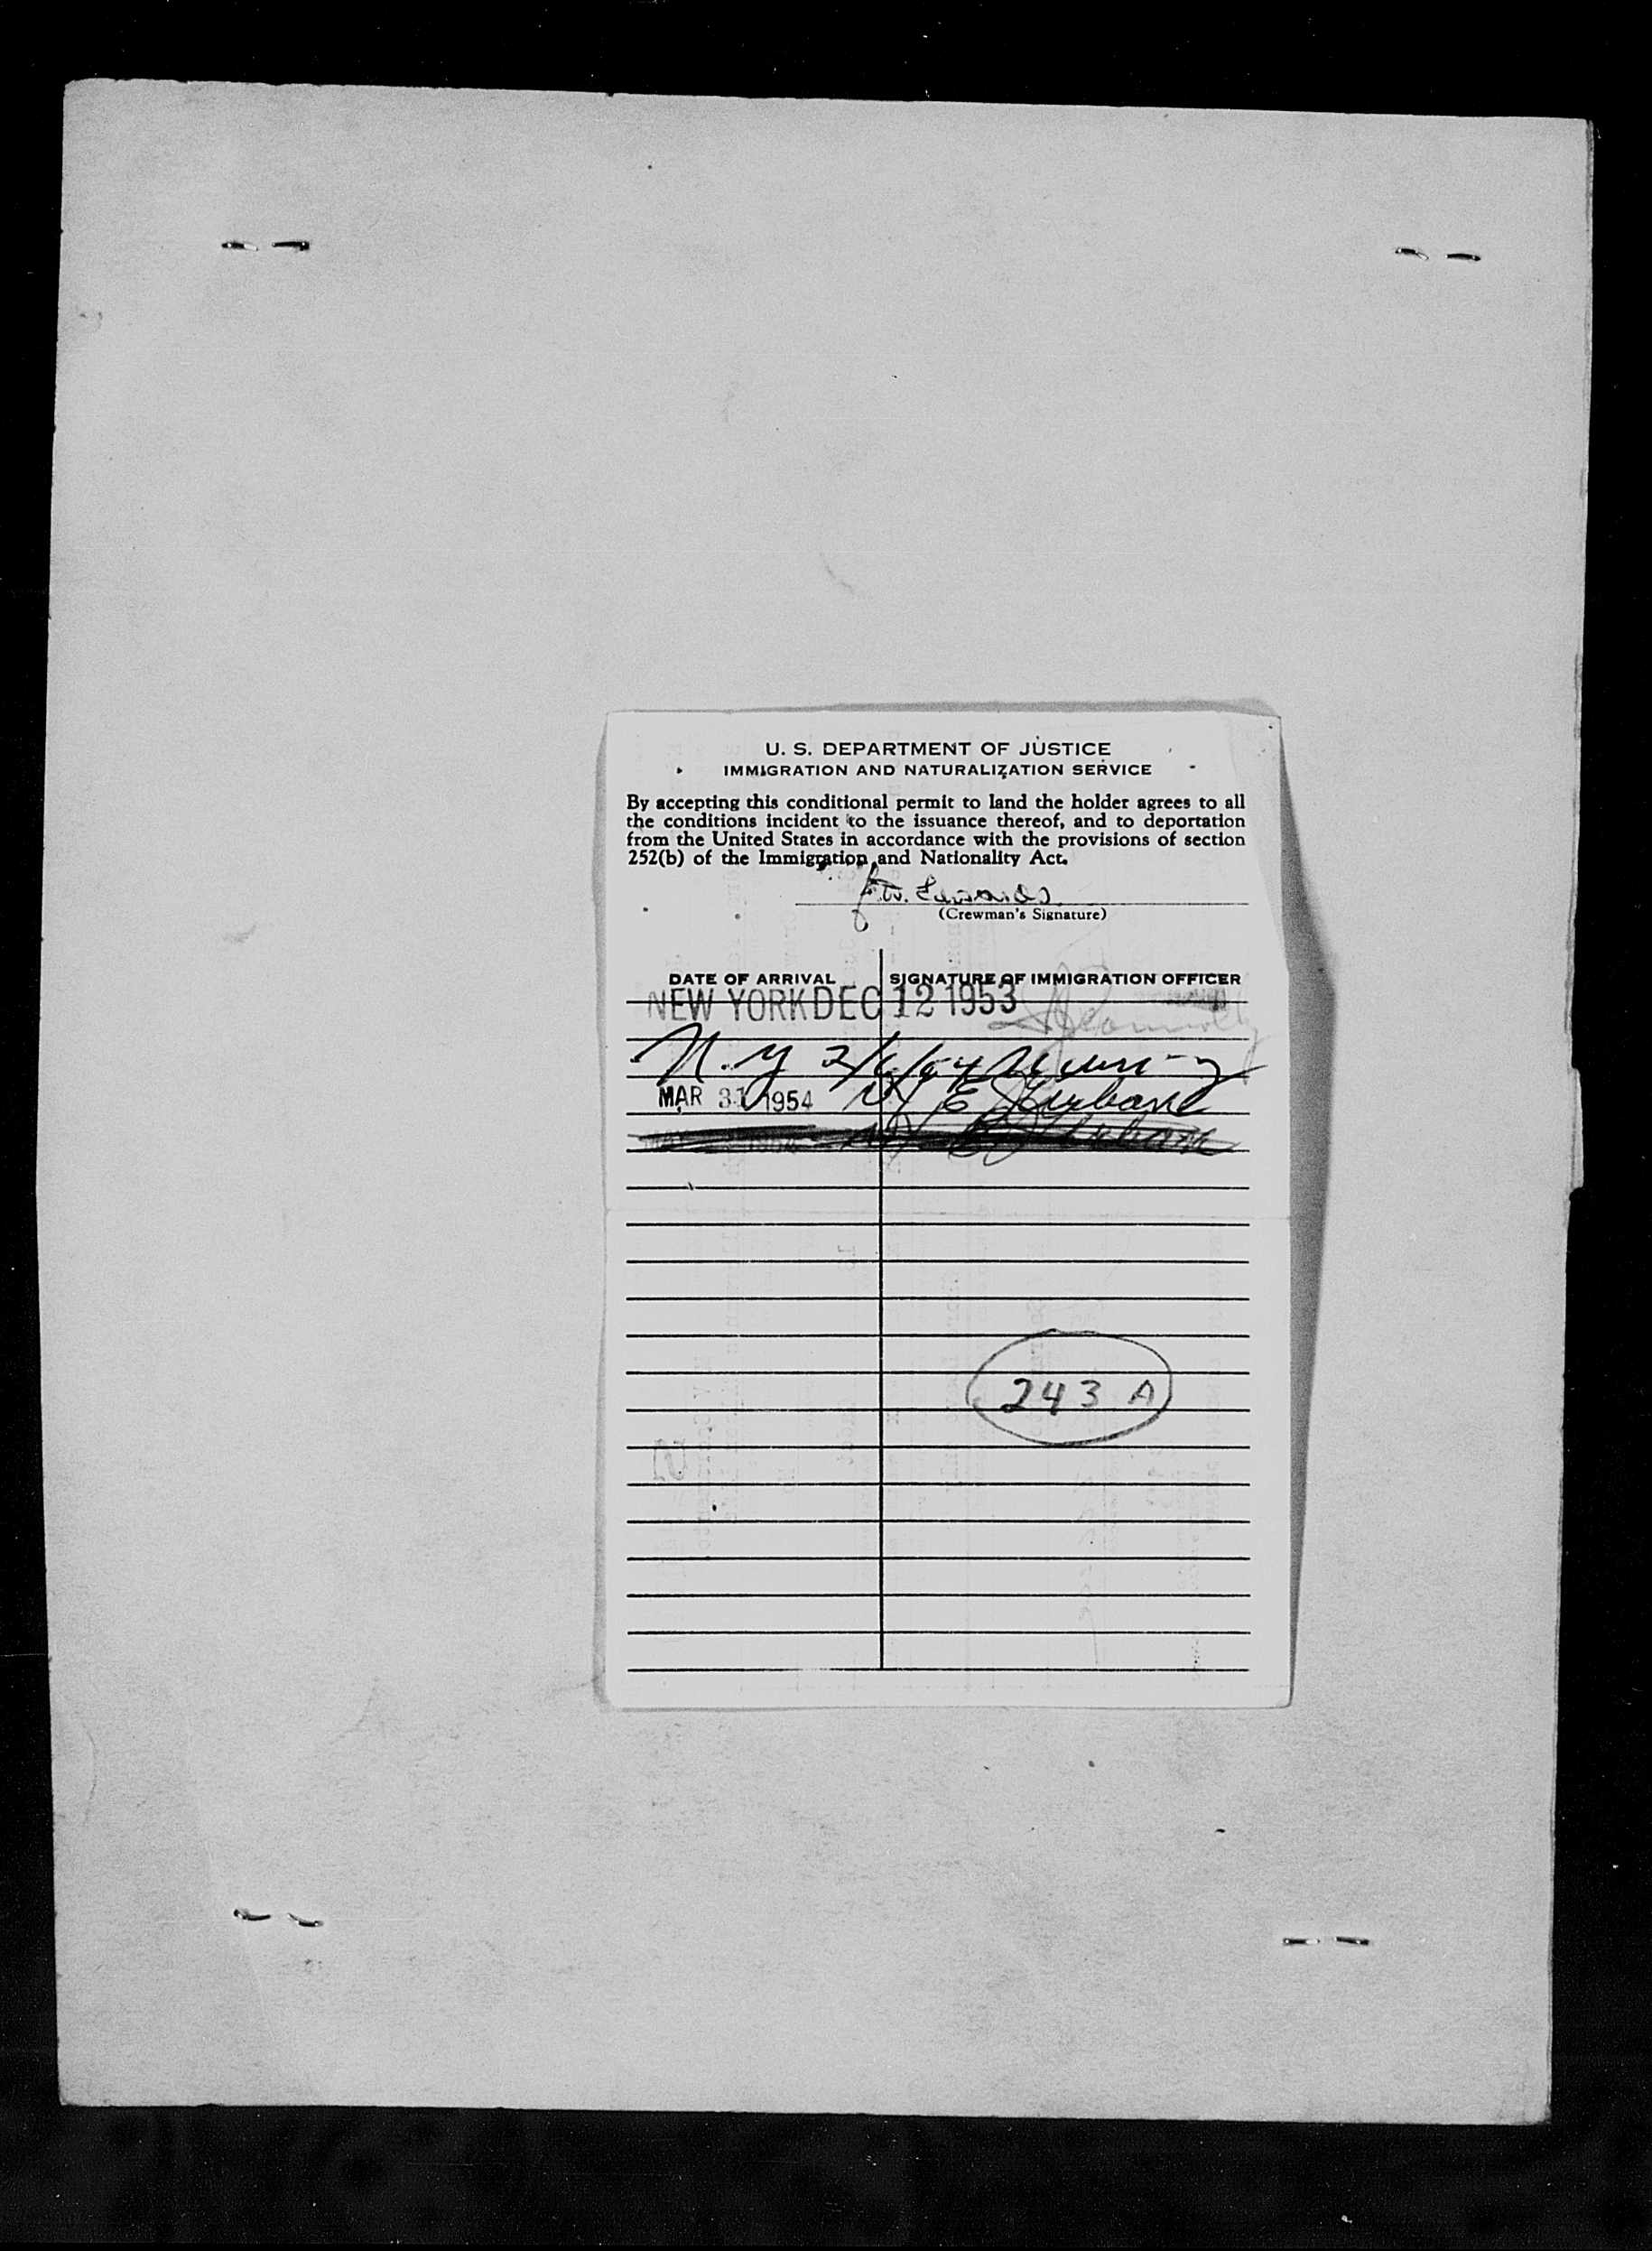 U. S. DEPARTMENT OF JUSTICE
IMMIGRATION AND NATURALIZATION SERVICE
By accepting this conditional permit to land the holder agrees to all
the conditions incident to the issuance thereof, and to deportation
from the United States in accordance with the provisions of section
252(b) of the Immigration and Nationality Act.
Edwards
(Crewman's Signature)
DATE OF ARRIVAL SIGNATURE OF IMMIGRATION OFFICER
NEW YORK DEC 12 1953
N.Y
MAR 31 1954 NY E
243 A